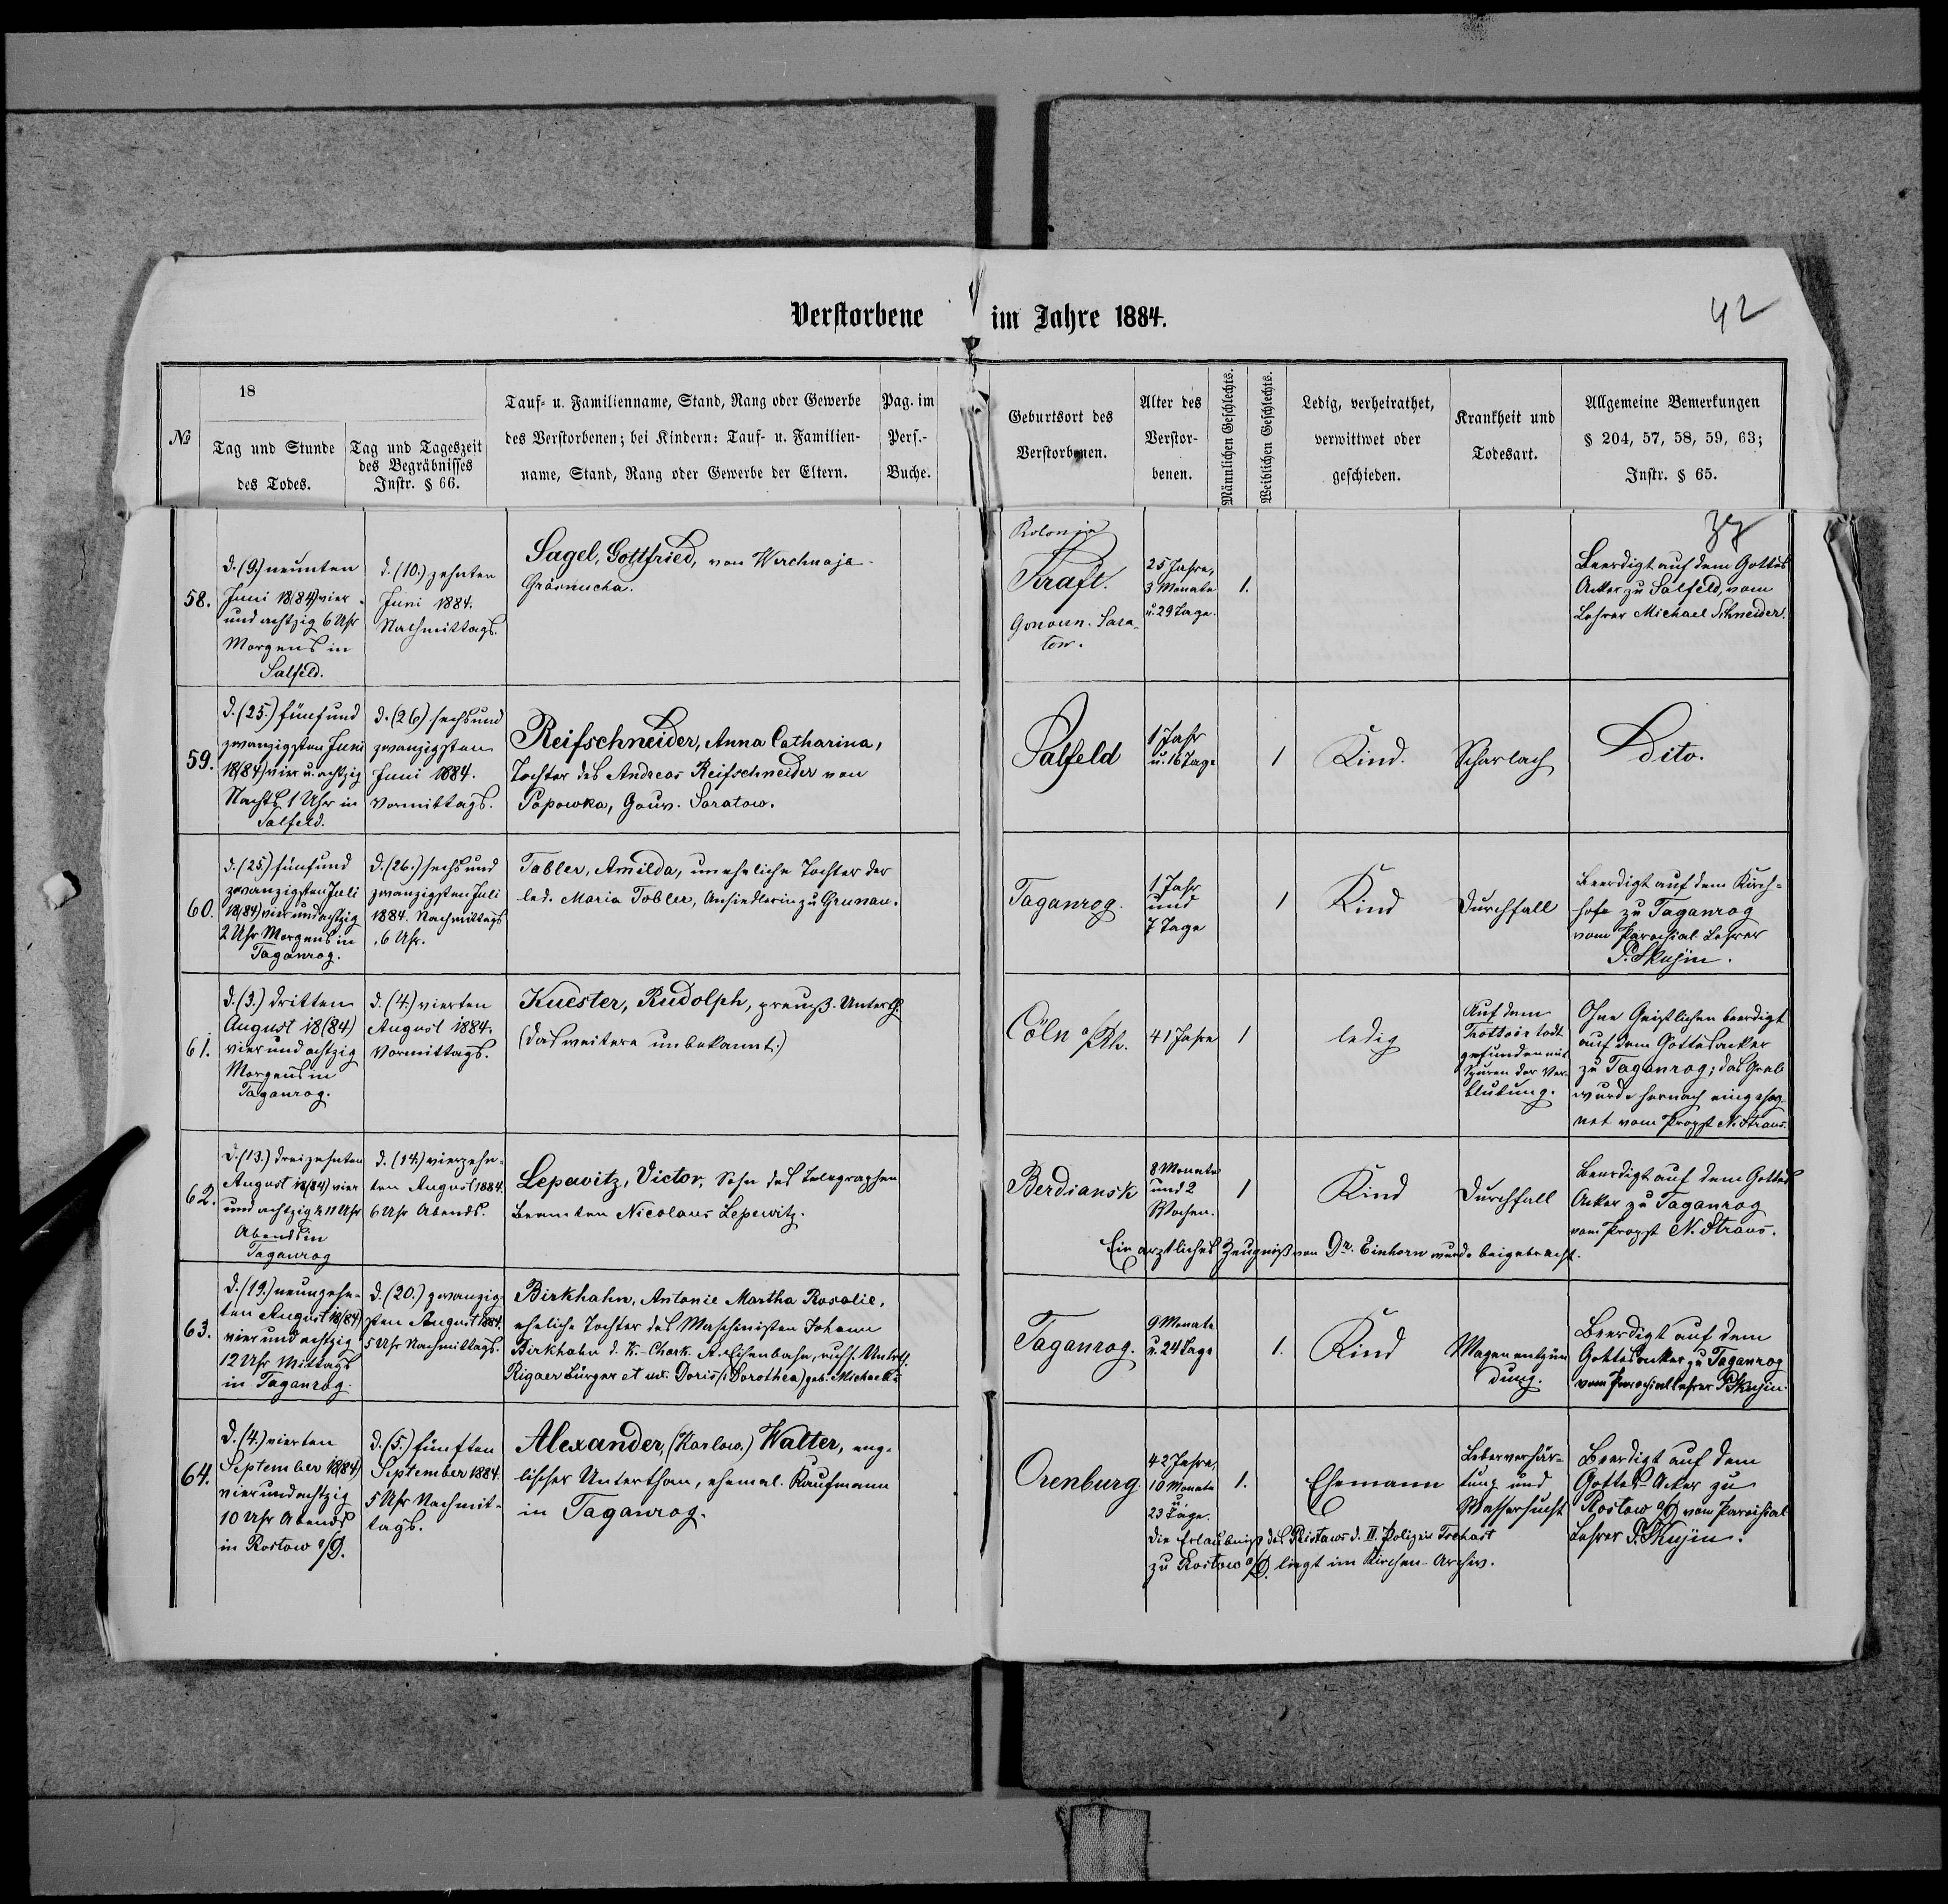 Verstorbene im Jahre 1884.
42
№
18
Tag und Stunde
des Todes.
Tag und Tageszeit
des Begräbnisses
Instr. § 66.
Tauf- u. Familienname, Stand, Rang oder Gewerbe
des Verstorbenen; bei Kindern: Tauf- u. Familien-
name, Stand, Rang oder Gewerbe der Eltern.
Pag. im
Pers.-
Buche.
Geburtsort des
Verstorbenen.
Alter des
Verstor-
benen.
Männlichen Geschlechts.
Weiblichen Geschlechts.
Ledig, verheirathet,
verwittwet oder
geschieden.
Krankheit und
Todesart.
Allgemeine Bemerkungen
§ 204, 57, 58, 59, 63;
Instr. § 65.
58.
d. (9.) neunten
Juni 18(84) vier-
und achtzig 6 Uhr
Morgens in
Salfeld.
d. (10.) zehnten
Juni 1884.
Nachmittags.
Sagel, Gottfried, von Werchnaja-
Kolonie
Kraft.
Gouvern. Sara-
tow.
25 Jahre,
3 Monate
u. 29 Tage.
1.
Beerdigt auf dem Gottes
Acker zu Salfeld, vom
Lehrer Michael Schneider.
59.
d. (25.) fünfund
zwanzigsten Juni
18(84) vier u. achtzig
Nachts 1 Uhr in
Salfeld.
d. (26) sechsund
zwanzigsten
Juni 1884.
Vormittags.
Reifschneider, Anna Catharina,
Tochter des Andreas Reifschneider von
Popowka, Gouv. Saratow.
Salfeld
1 Jahr
u. 16 Tage
1
Kind.
Scharlach
Dito.
60.
d. (25.) fünfund
zwanzigsten Juli
18(84) vierundachtzig
2 Uhr Morgens in
Taganrog.
d. (26.) sechsund
zwanzigsten Juli
1884. Nachmittags
6 Uhr.
Tabler, Amilda, uneheliche Tochter der
led. Maria Tobler, Ansiedlerin zu Grunau.
Taganrog.
1 Jahr
und
7 Tage
1
Kind
Durchfall
Beerdigt auf dem Kirch-
hofe zu Taganrog
vom Parochial-Lehrer
P. Skujin.
61.
d. (3.) dritten
August 18(84)
vierundachtzig
Morgens in
Taganrog.
d. (4.) vierten
August 1884.
Vormittags.
Kuester, Rudolph, preuß. Unterth.
(das weitere unbekannt.)
Cöln a/Rh.
41 Jahre
1
ledig
Auf dem
Trottoir todt
gefunden mit
Spuren der Ver-
blutung.
Ohne Geistlichen beerdigt
auf dem Gottesacker
zu Taganrog; das Grab
wurde hernach eingeseg-
net vom Propst N. Straus.
62.
d. (13.) dreizehnten
August 18(84) vier
und achtzig ½ 11 Uhr
Abends in
Taganrog
d. (14.) vierzehn-
ten August 1884.
6 Uhr Abends.
Lepewitz, Victor, Sohn des Telegraphen
Beamten Nicolaus Lepewitz.
Berdiansk
8 Monate
und 2
Wochen.
1
Kind
Durchfall
Beerdigt auf dem Gottes
Acker zu Taganrog
vom Propst N. Straus.
Ein arztliches Zeugniß von Dr. Einhorn wurde beigebracht.
63.
d. (19.) neunzehn-
ten August 18(84)
vier und achtzig
12 Uhr Mittags
in Taganrog.
d. (20.) zwanzig-
sten August 1884.
5 Uhr Nachmittags.
Birkhahn, Antonie Martha Rosalie,
eheliche Tochter des Maschinisten Johann
Birkhahn d. K.-Chark. A. Eisenbahn, russ. Unterth.
Rigaer Bürger et ux. Doris (Dorothea) geb. Michaelis
Taganrog.
9 Monate
u. 24 Tage
1.
Kind
Magenentzün
dung.
Beerdigt auf dem
Gottesacker zu Taganrog
vom Parochiallehrer P. Skujin.
64.
d. (4.) vierten
September 18(84)
vierundachtzig
10 Uhr Abends
in Rostow a/D.
d. (5.) fünften
September 1884.
5 Uhr Nachmit-
tags.
Alexander, (Karlow.) Walter, eng-
lischer Unterthan, ehemal. Kaufmann
in Taganrog.
Orenburg.
42 Jahre
10 Monate
u.
23 Tage.
1.
Ehemann
Leberverhär-
tung und
Wassersucht
Beerdigt auf dem
Gottes-Acker zu
Rostow a/D vom Parochial
Lehrer P. Skujin.
Die Erlaubniß des Pristaws d. II. Polizei
zu Rostow a/D. liegt im Kirchen-Archiv.